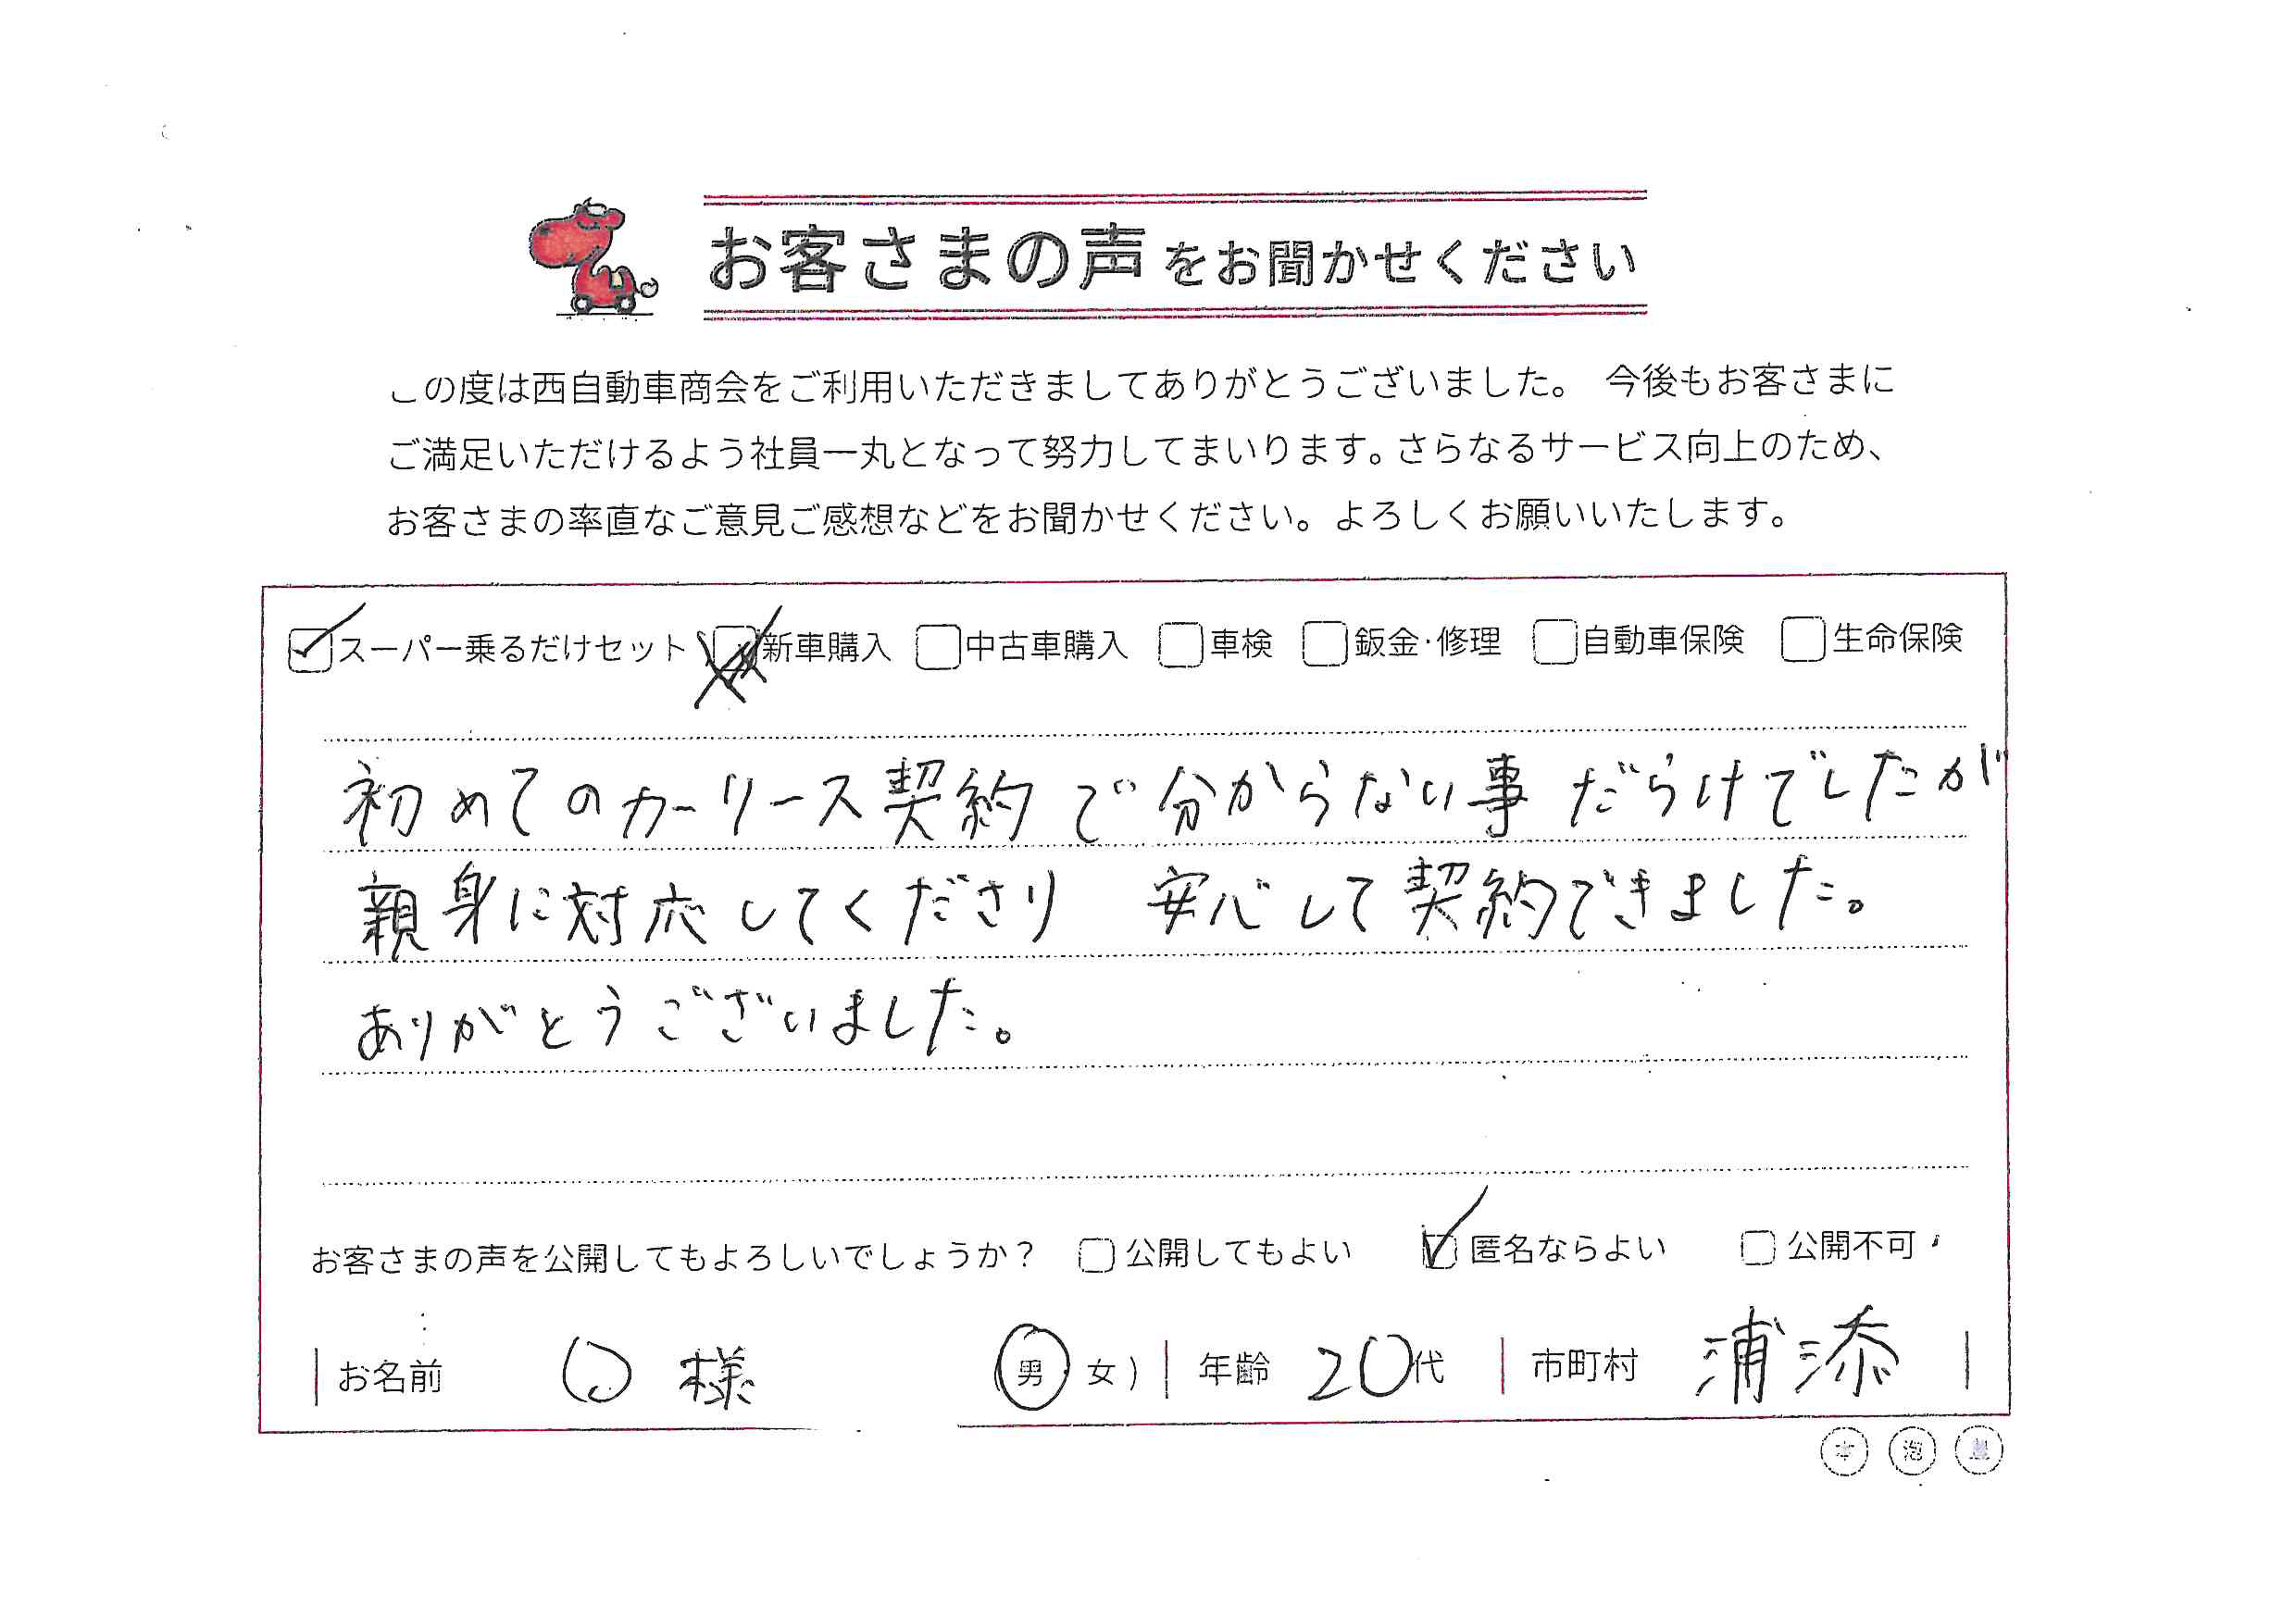 お客さまの声をお聞かせください
この度は西自動車商会をご利用いただきましてありがとうございました。 今後もお客さまに
ご満足いただけるよう社員一丸となって努力してまいります。さらなるサービス向上のため、
お客さまの率直なご意見ご感想などをお聞かせください。よろしくお願いいたします。
スーパー乗るだけセット 新車購入 中古車購入 車検 鈑金·修理 自動車保険 生命保険
初めてのカーリース契約で分からない事だらけでしたが
親身に対応してくださり 安心して契約できました。
ありがとうございました。
お客さまの声を公開してもよろしいでしょうか？ 公開してもよい 匿名ならよい 公開不可
お名前 〇様 (男 女) 年齢 20代 市町村 浦添